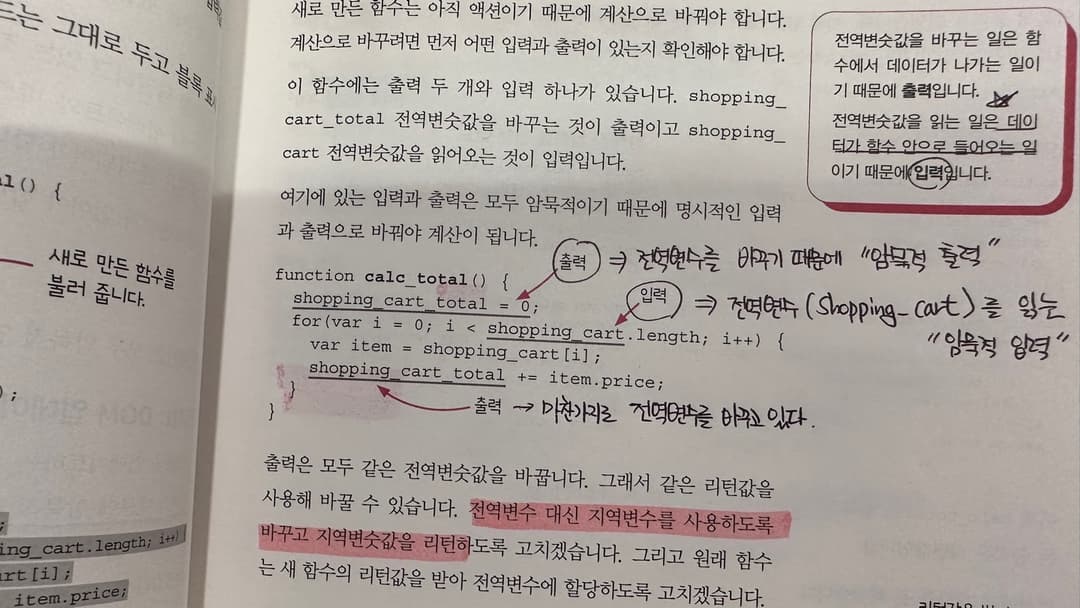 드는 그대로 두고 블록 표시
새로 만든 함수를
불러 줍니다.
ing_cart.length; i++)
art[i];
item.price;
새로 만든 함수는 아직 액션이기 때문에 계산으로 바꿔야 합니다.
계산으로 바꾸려면 먼저 어떤 입력과 출력이 있는지 확인해야 합니다.
이 함수에는 출력 두 개와 입력 하나가 있습니다. shopping_
cart_total 전역변숫값을 바꾸는 것이 출력이고 shopping_
cart 전역변숫값을 읽어오는 것이 입력입니다.
여기에 있는 입력과 출력은 모두 암묵적이기 때문에 명시적인 입력
과 출력으로 바꿔야 계산이 됩니다.
출력 ⇒ 전역변수를 바꾸기 때문에 "암묵적 출력"
function calc_total() {
shopping_cart_total = 0;
입력 ⇒ 전역변수(shopping_cart)를 읽는
"암묵적 입력"
for(var i = 0; i < shopping_cart.length; i++) {
var item = shopping_cart[i];
shopping_cart_total += item.price;
}
출력 → 마찬가지로 전역변수를 바꾸고 있다.
}
출력은 모두 같은 전역변숫값을 바꿉니다. 그래서 같은 리턴값을
사용해 바꿀 수 있습니다. 전역변수 대신 지역변수를 사용하도록
바꾸고 지역변숫값을 리턴하도록 고치겠습니다. 그리고 원래 함수
는 새 함수의 리턴값을 받아 전역변수에 할당하도록 고치겠습니다.
전역변숫값을 바꾸는 일은 함
수에서 데이터가 나가는 일이
기 때문에 출력입니다.
전역변숫값을 읽는 일은 데이
터가 함수 안으로 들어오는 일
이기 때문에 입력입니다.